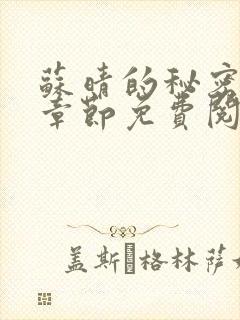 蘇晴的秘密
章節免費閱
蓋斯 格林薩